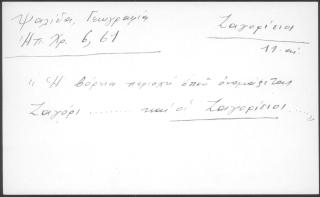 Ψαλίδα, Γεωγραφία
Ηπ. Χρ. 6, 61
Ζαγορίσιοι
11. αι
"Η βόρεια περιοχή όπου ονομάζεται
Ζαγόρι ........ και οι Ζαγορίσιοι ......"